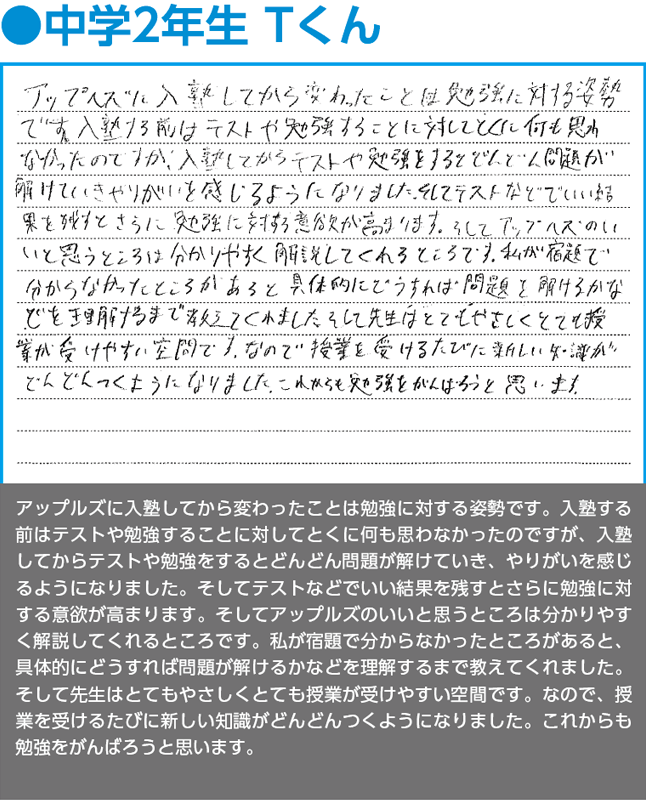 ●中学2年生 Tくん
アップルズに入塾してから変わったことは勉強に対する姿勢
です。入塾する前はテストや勉強することに対してとくに何も思わ
なかったのですが、入塾してからテストや勉強をするとどんどん問題が
解けていきやりがいを感じるようになりました。そしてテストなどでいい結
果を残すとさらに勉強に対する意欲が高まります。そしてアップルズのい
いと思うところは分かりやすく解説してくれるところです。私が宿題で
分からなかったところがあると具体的にどうすれば問題を解けるかな
どを理解するまで教えてくれました。そして先生はとてもやさしくとても授
業が受けやすい空間です。なので授業を受けるたびに新しい知識が
どんどんつくようになりました。これからも勉強をがんばろうと思います。
アップルズに入塾してから変わったことは勉強に対する姿勢です。入塾する
前はテストや勉強することに対してとくに何も思わなかったのですが、入塾
してからテストや勉強をするとどんどん問題が解けていき、やりがいを感じ
るようになりました。そしてテストなどでいい結果を残すとさらに勉強に対
する意欲が高まります。そしてアップルズのいいと思うところは分かりやす
く解説してくれるところです。私が宿題で分からなかったところがあると、
具体的にどうすれば問題が解けるかなどを理解するまで教えてくれました。
そして先生はとてもやさしくとても授業が受けやすい空間です。なので、授
業を受けるたびに新しい知識がどんどんつくようになりました。これからも
勉強をがんばろうと思います。